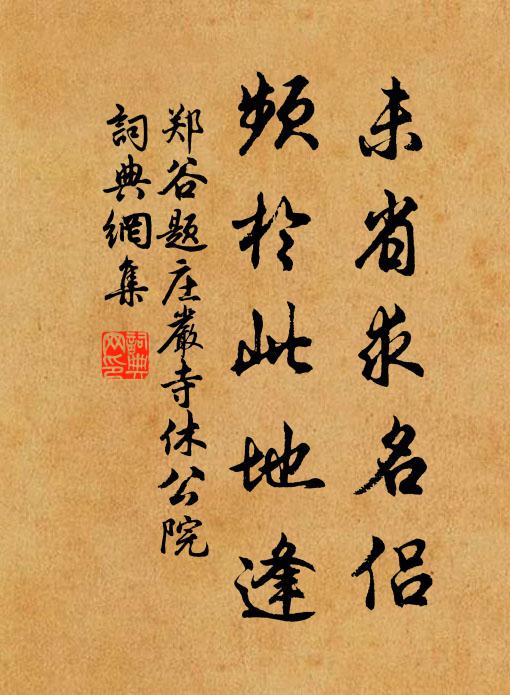 未省求名侣
頻於此地逢
郑谷题庄嚴寺休公院
詞典網集
詞典
网印